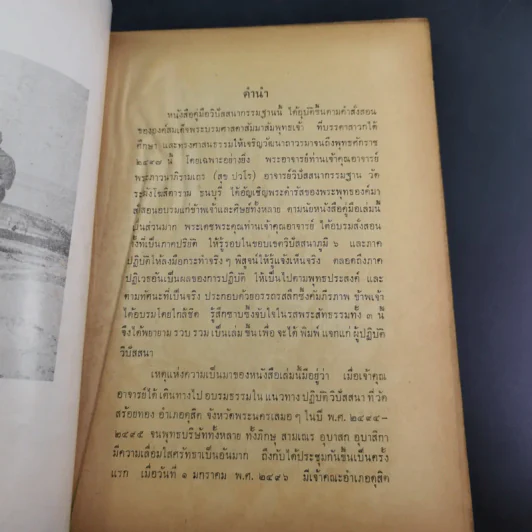 คำนำ
หนังสือคู่มือวิปัสสนากรรมฐานนี้ ได้อุบัติขึ้นตามคำสั่งสอน
ขององค์สมเด็จพระบรมศาสดาสัมมาสัมพุทธเจ้า ที่บรรดาสาวกได้
ศึกษา และทรงศาสนธรรมให้เจริญวัฒนาถาวรมาจนถึงพุทธศักราช
๒๔๙๗ นี้ โดยเฉพาะอย่างยิ่ง พระอาจารย์ท่านเจ้าคุณอาจารย์
พระภาวนาภิรามเถร (สุข ปวโร) อาจารย์วิปัสสนากรรมฐาน วัด
ระฆังโฆสิตาราม ธนบุรี ได้อัญเชิญพระดำรัสของพระพุทธองค์มา
สั่งสอนอบรมแก่ข้าพเจ้าและศิษย์ทั้งหลาย ตามนัยหนังสือคู่มือเล่มนี้
เป็นส่วนมาก พระเดชพระคุณท่านเจ้าคุณอาจารย์ ได้อบรมสั่งสอน
ทั้งที่เป็นภาคปริยัติ ให้รู้รอบในขอบเขตวิปัสสนาภูมิ ๖ และภาค
ปฏิบัติให้ลงมือกระทำจริง ๆ พิสูจน์ให้รู้แจ้งเห็นจริง ตลอดถึงภาค
ปฏิเวธอันเป็นผลของการปฏิบัติ ให้เป็นไปตามพุทธประสงค์ และ
ตามทัศนะที่เป็นจริง ประกอบด้วยอรรถรสลึกซึ้งคัมภีรภาพ ข้าพเจ้า
ได้อบรมโดยใกล้ชิด รู้สึกซาบซึ้งจับใจในรสพระสัทธรรมทั้ง ๓ นี้
จึงได้พยายาม รวบ รวม เป็นเล่ม ขึ้น เพื่อ จะได้ พิมพ์ แจกแก่ ผู้ปฏิบัติ
วิปัสสนา
เหตุแห่งความเป็นมาของหนังสือเล่มนี้มีอยู่ว่า เมื่อเจ้าคุณ
อาจารย์ได้ เดินทางไป อบรมธรรมใน แนวทาง ปฏิบัติวิปัสสนา ที่วัด
สร้อยทอง อำเภอดุสิต จังหวัดพระนครเสมอ ๆ ในปี พ.ศ. ๒๔๙๔-
๒๔๙๕ จนพุทธบริษัททั้งหลาย ทั้งภิกษุ สามเณร อุบาสก อุบาสิกา
มีความเลื่อมใสศรัทธาเป็นอันมาก ถึงกับได้ประชุมกันขึ้นเป็นครั้ง
แรก เมื่อวันที่ ๑ มกราคม พ.ศ. ๒๔๙๖ มีเจ้าคณะอำเภอดุสิต